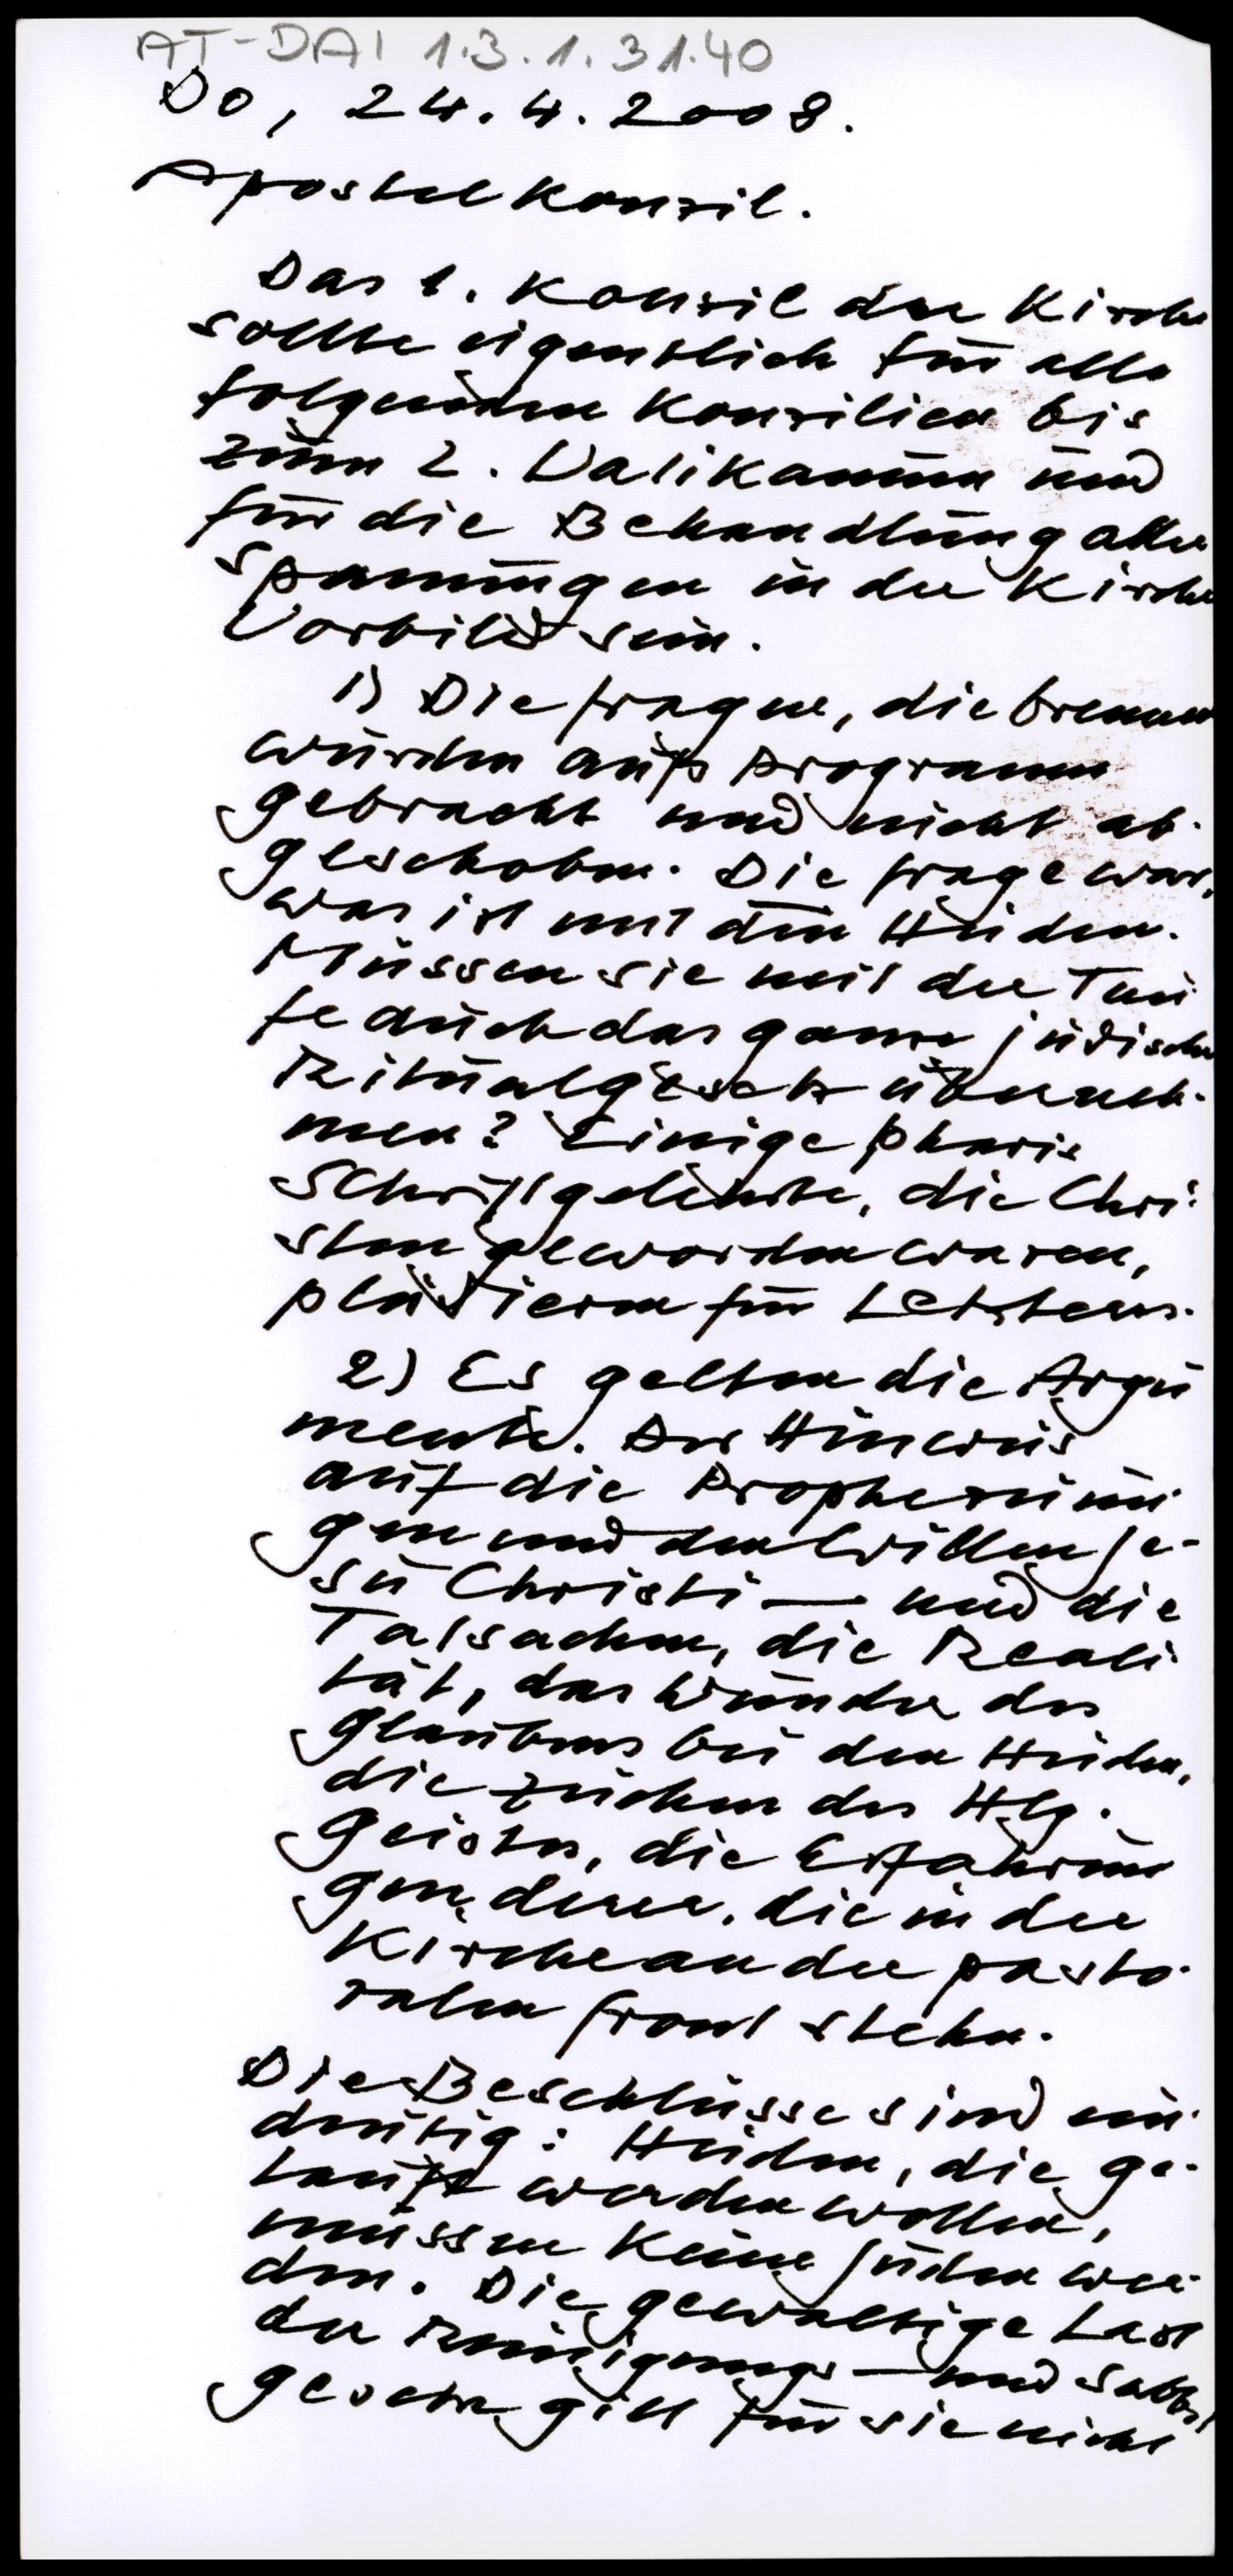 AT-DAI 1.3.1.31.40
Do, 24.4.2008.
Apostelkonzil.
Das 1. Konzil der Kirche
sollte eigentlich für alle
folgenden Konzilien bis
zum 2. Vatikanum und
für die Behandlung aller
Spannungen in der Kirche
Vorbild sein.
1) Die Fragen, die brennen
wurden aufs Programm
gebracht und nicht ab-
geschoben. Die Frage war,
was ist mit den Heiden.
Müssen sie mit der Tau
fe auch das ganze jüdische
Ritualgesetz überneh-
men? Einige pharis
Schriftgelehrte, die Chri-
sten geworden waren,
plädieren für Letzteres.
2) Es gelten die Argu
mente. Der Hinweis
auf die Prophezeiun
gen und den Willen Je-
su Christi — und die
Tatsachen, die Reali
tät, das Wunder des
Glaubens bei den Heiden,
die Zeichen des Hlg.
Geistes, die Erfahrun
gen derer, die in der
Kirche an der pasto-
ralen Front stehen.
Die Beschlüsse sind ein-
deutig: Heiden, die ge-
tauft werden wollen,
müssen keine Juden wer-
den. Die gewaltige Last
der Reinigungs- und Sabbat
gesetze gilt für sie nicht